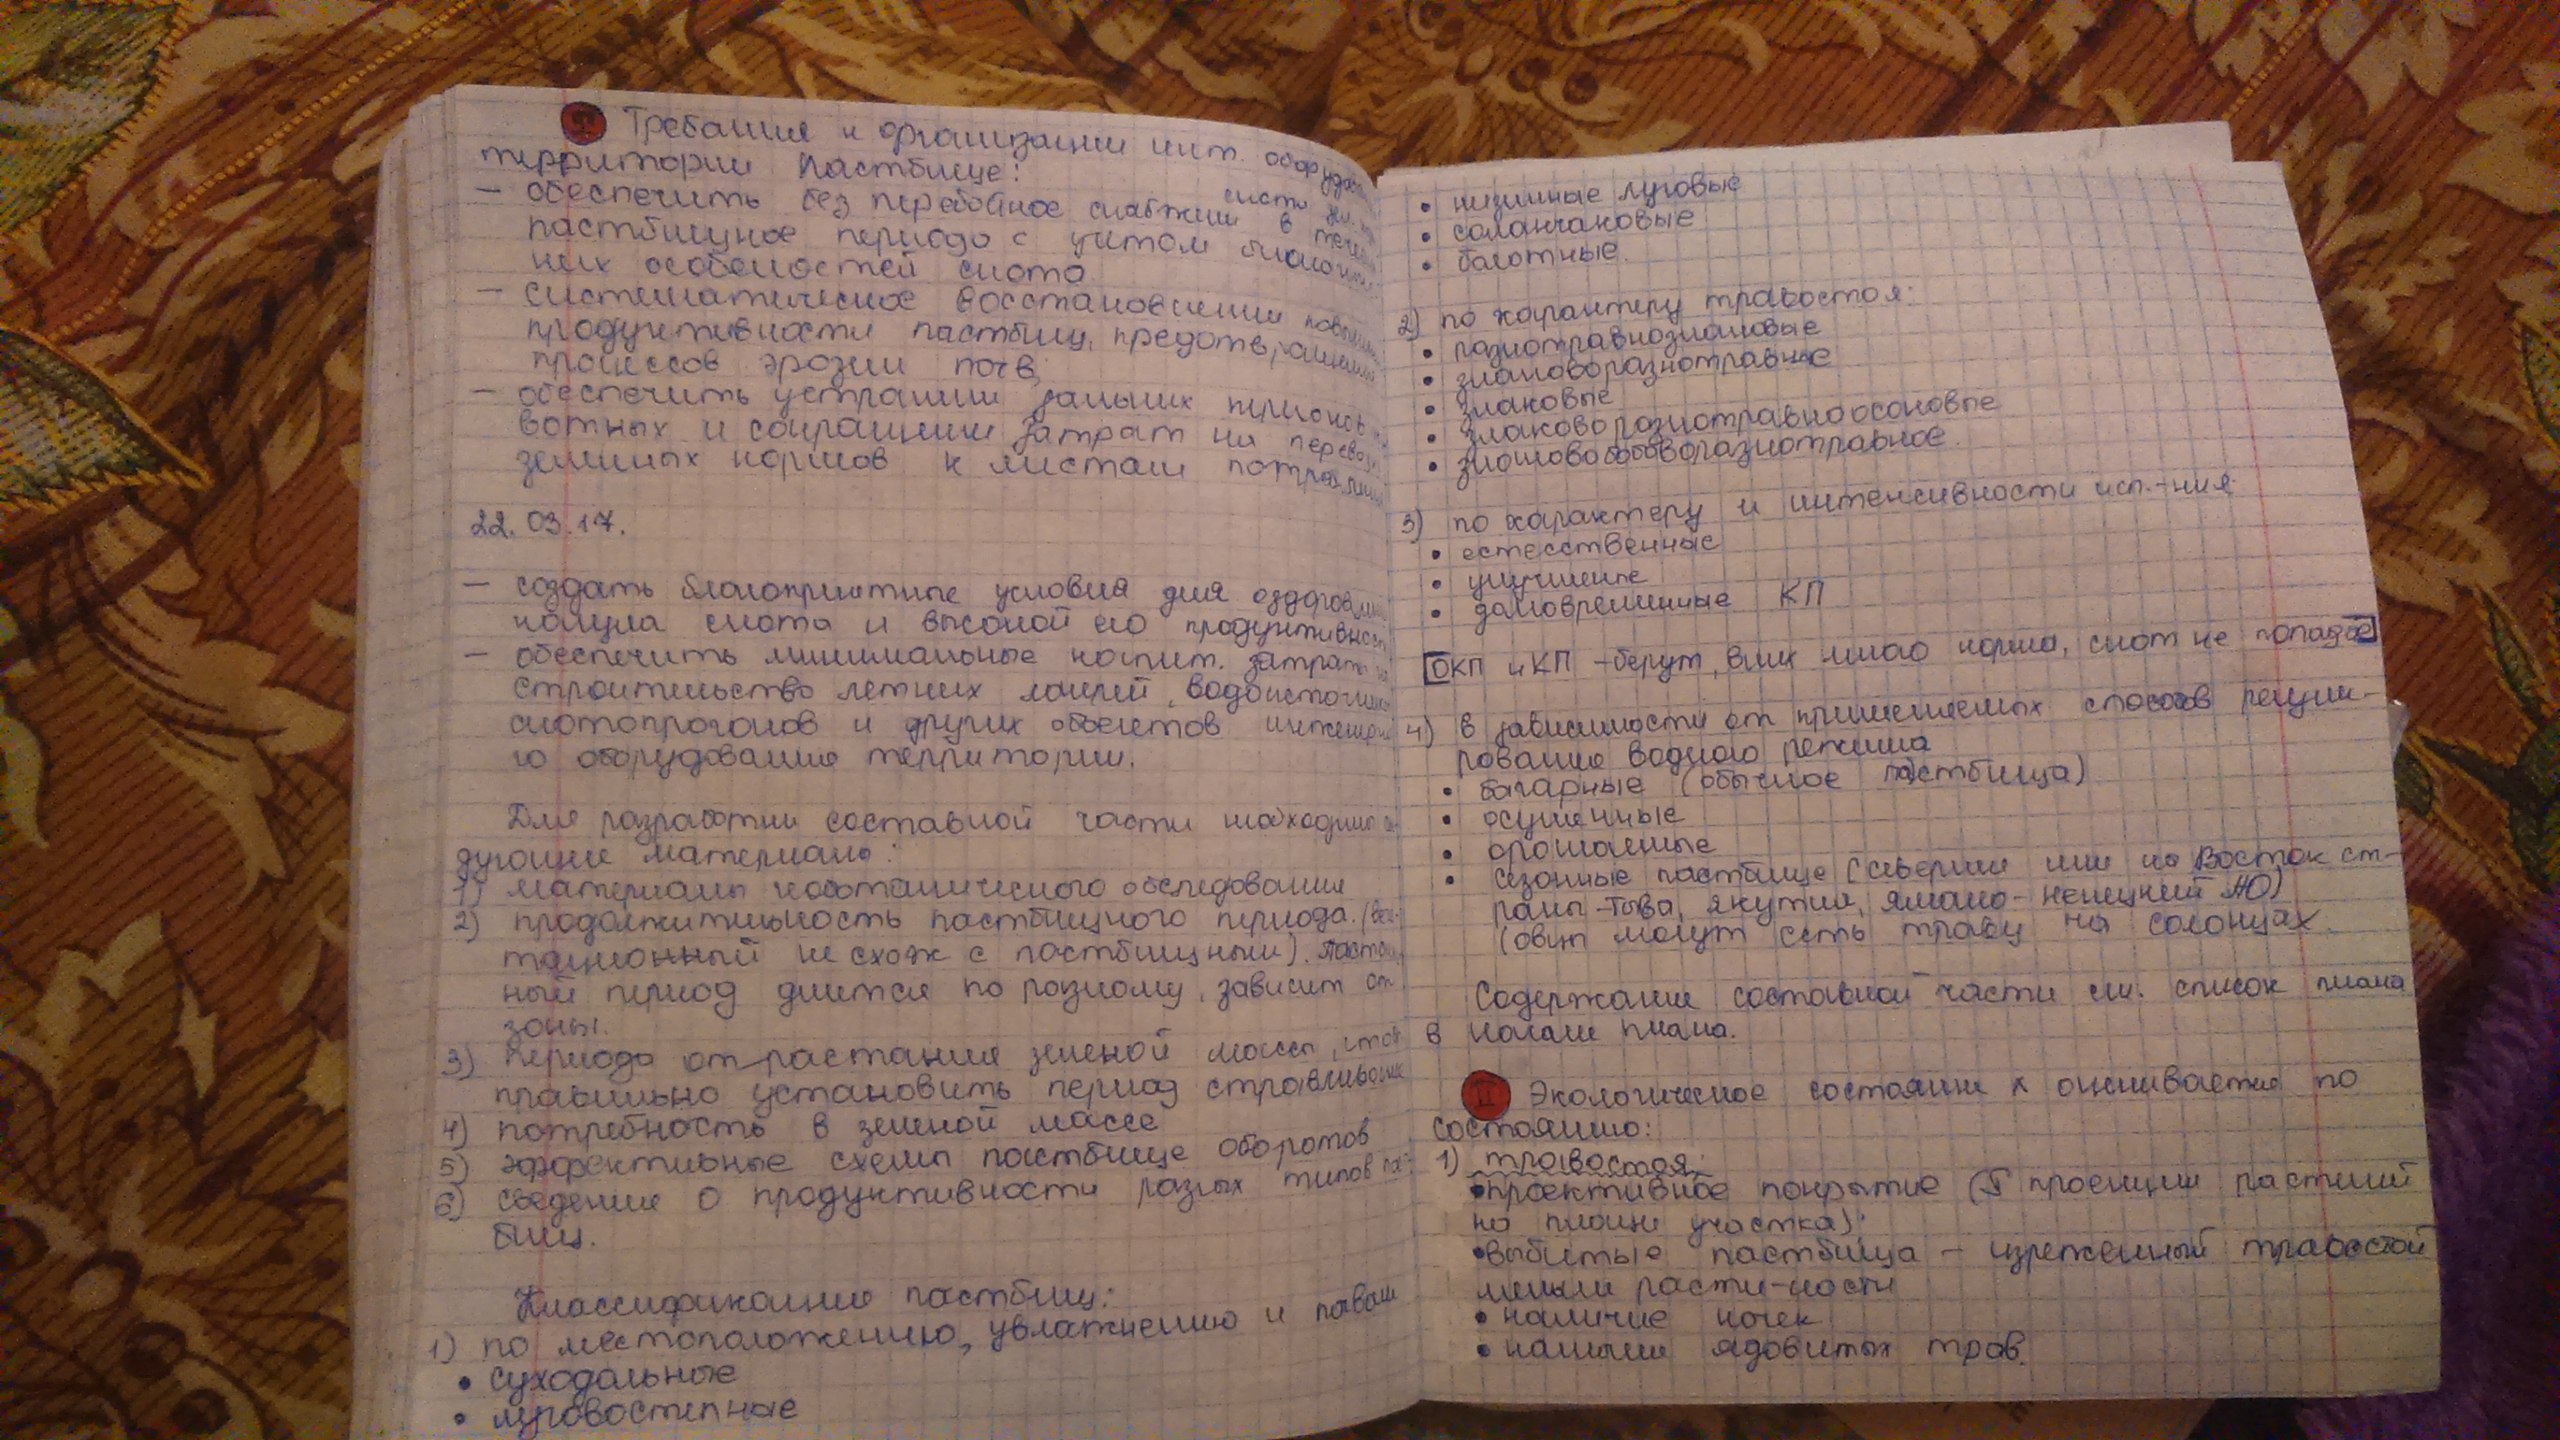 Требание к организации инт. оборудов
территории Пастбище:
– обеспечить без перебойное снабжении в течен
пастбищное периода с учетом биологич
них особеностей скота
– систематическое восстановлении повыш
продуктивности пастбищ, предотвращении
процессов эрозии почв;
– обеспечить устранении дальних перегонов
вотных и сокращении затрат на перевоз
зеленых кормов к местам потреблени
22.03.17.
– создать благоприятные условия для оздоровлен
скота и высокой его продуктивност
– обеспечить минимальные капит. затрат на
строительство летних лагерей, водоисточник
скотопрогонов и других объектов инженерн
го оборудование территории.
Для разработки составной части необходимо
дующие материалы:
1) материалы геоботанического обследования
2) продолжительность пастбищного периода. (ве-
тационный не схож с пастбищным). Пастби
ный период длится по разному, зависит от
зоны.
3) Периода отрастание зеленой массы, чтоб
правильно установить период стравливание
4) потребность в зеленой массе
5) эффективные схемы пастбище оборотов
6) сведение о продуктивности разных типов па-
бищ.
Классификацие пастбищ:
1) по местоположению, увлажнению и почвам
• суходольные
• луговостепные
• низинные луговые
• саланчаковые
• балотные.
2) по характеру травостоя:
• разнотравнозлаковые
• злаковоразнотравные
• злаковые
• злаково разнотравноосоковые
• злаковобобоворазнотравное.
3) по характеру и интенсивности исп.-ния
• естесственные
• улучшеные
• долговременные КП
ОКП и КП – берут, в них много корма, скот не попадае
4) в зависимости от применяемых способов регули-
рование водного режима
• багарные (обычное пастбища)
• осушенные
• орошаемые
• сезонные пастбище (северни или на Восток ст-
раны – Тыва, Якутия, Ямало-ненецкий АО)
(овцы могут есть траву на солонцах.
Содержание составной части см. список плана
в начале плана.
II Экологическое состояние х оценивается по
состоянию:
1) травостоя:
• проективное покрытие (S проекции растений
на площи участка);
• выбитые пастбища – изреженный травостой
меньше расти-ности
• наличие кочек
• наличии ядовитых трав.